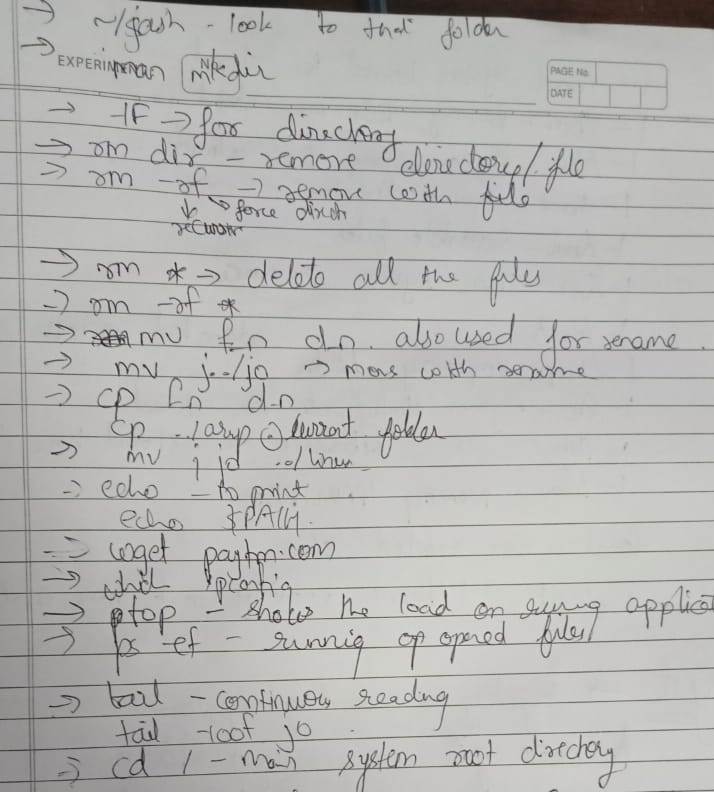 → ~/gash - look to that folder
→ mkdir
EXPERIMENT NO.
PAGE No.
DATE
→ -1F → for directory
→ rm dir - remove directory/file
→ rm -rf → remove with file
force
→ rm * → delete all the files
→ rm -rf *
→ mv f.n d.n. also used for rename.
→ mv j ../jo → move with rename
→ cp f.n d.n
cp ../arup . current folder
→ mv j jd ../
→ echo - to print
echo $PATH.
→ wget paytm.com
→ which ipconfig
→ top - shows the load on runing applicat
→ ps -ef - runnig or opened files
→ tail - continuous reading
tail -100f jo.
→ cd / - main system root directory